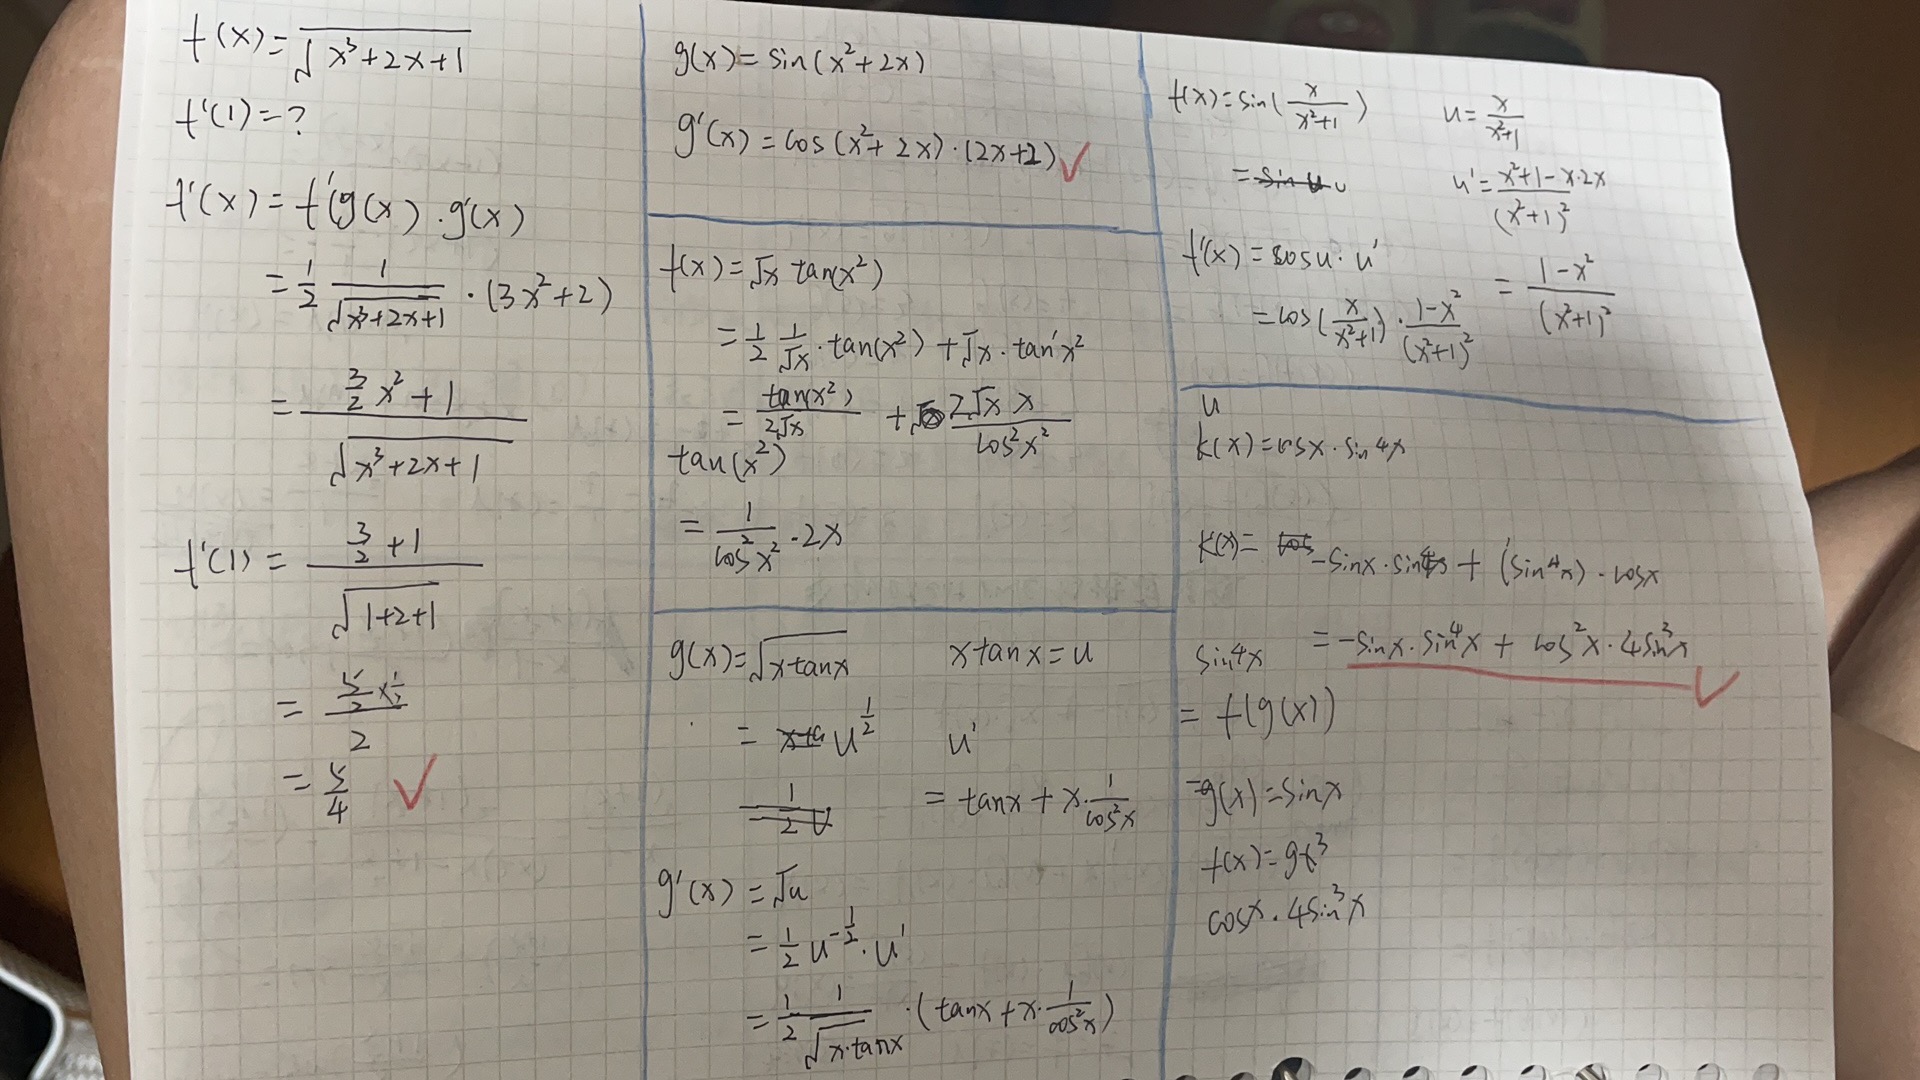 f(x)=√(x³+2x+1)
f'(1)=?
f'(x)=f'(g(x)·g'(x)
=1/2 1/√(x³+2x+1) ·(3x²+2)
=(3/2 x²+1)/√(x³+2x+1)
f'(1)=(3/2+1)/√(1+2+1)
=(5/2)/2
=5/4 ✓
g(x)=sin(x²+2x)
g'(x)=cos(x²+2x)·(2x+2) ✓
f(x)=√x tan(x²)
=1/2 1/√x·tan(x²)+√x·tan'x²
=tan(x²)/2√x + 2√x x/cos²x²
tan(x²)
=1/cos²x²·2x
g(x)=√(xtanx) xtanx=u
=u^(1/2) u'
1/2u =tanx+x·1/cos²x
g'(x)=√u
=1/2 u^(-1/2)·u'
=1/2 1/√(x·tanx)·(tanx+x·1/cos²x)
f(x)=sin(x/(x²+1)) u=x/(x²+1)
=sin u u'=(x²+1-x·2x)/(x²+1)²
f'(x)=cosu·u' =(1-x²)/(x²+1)²
=cos(x/(x²+1))·(1-x²)/(x²+1)²
u
k(x)=cosx·sin⁴x
k'(x)=cos -sinx·sin⁴x+(sin⁴x)'·cosx
=-sinx·sin⁴x+cos²x·4sin³x ✓
sin⁴x
=f(g(x))
=g(x)=sinx
f(x)=
cosx·4sin³x